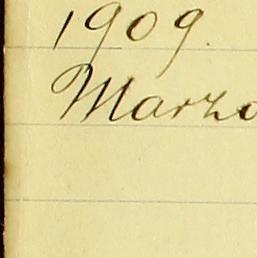 1909.
Marzo